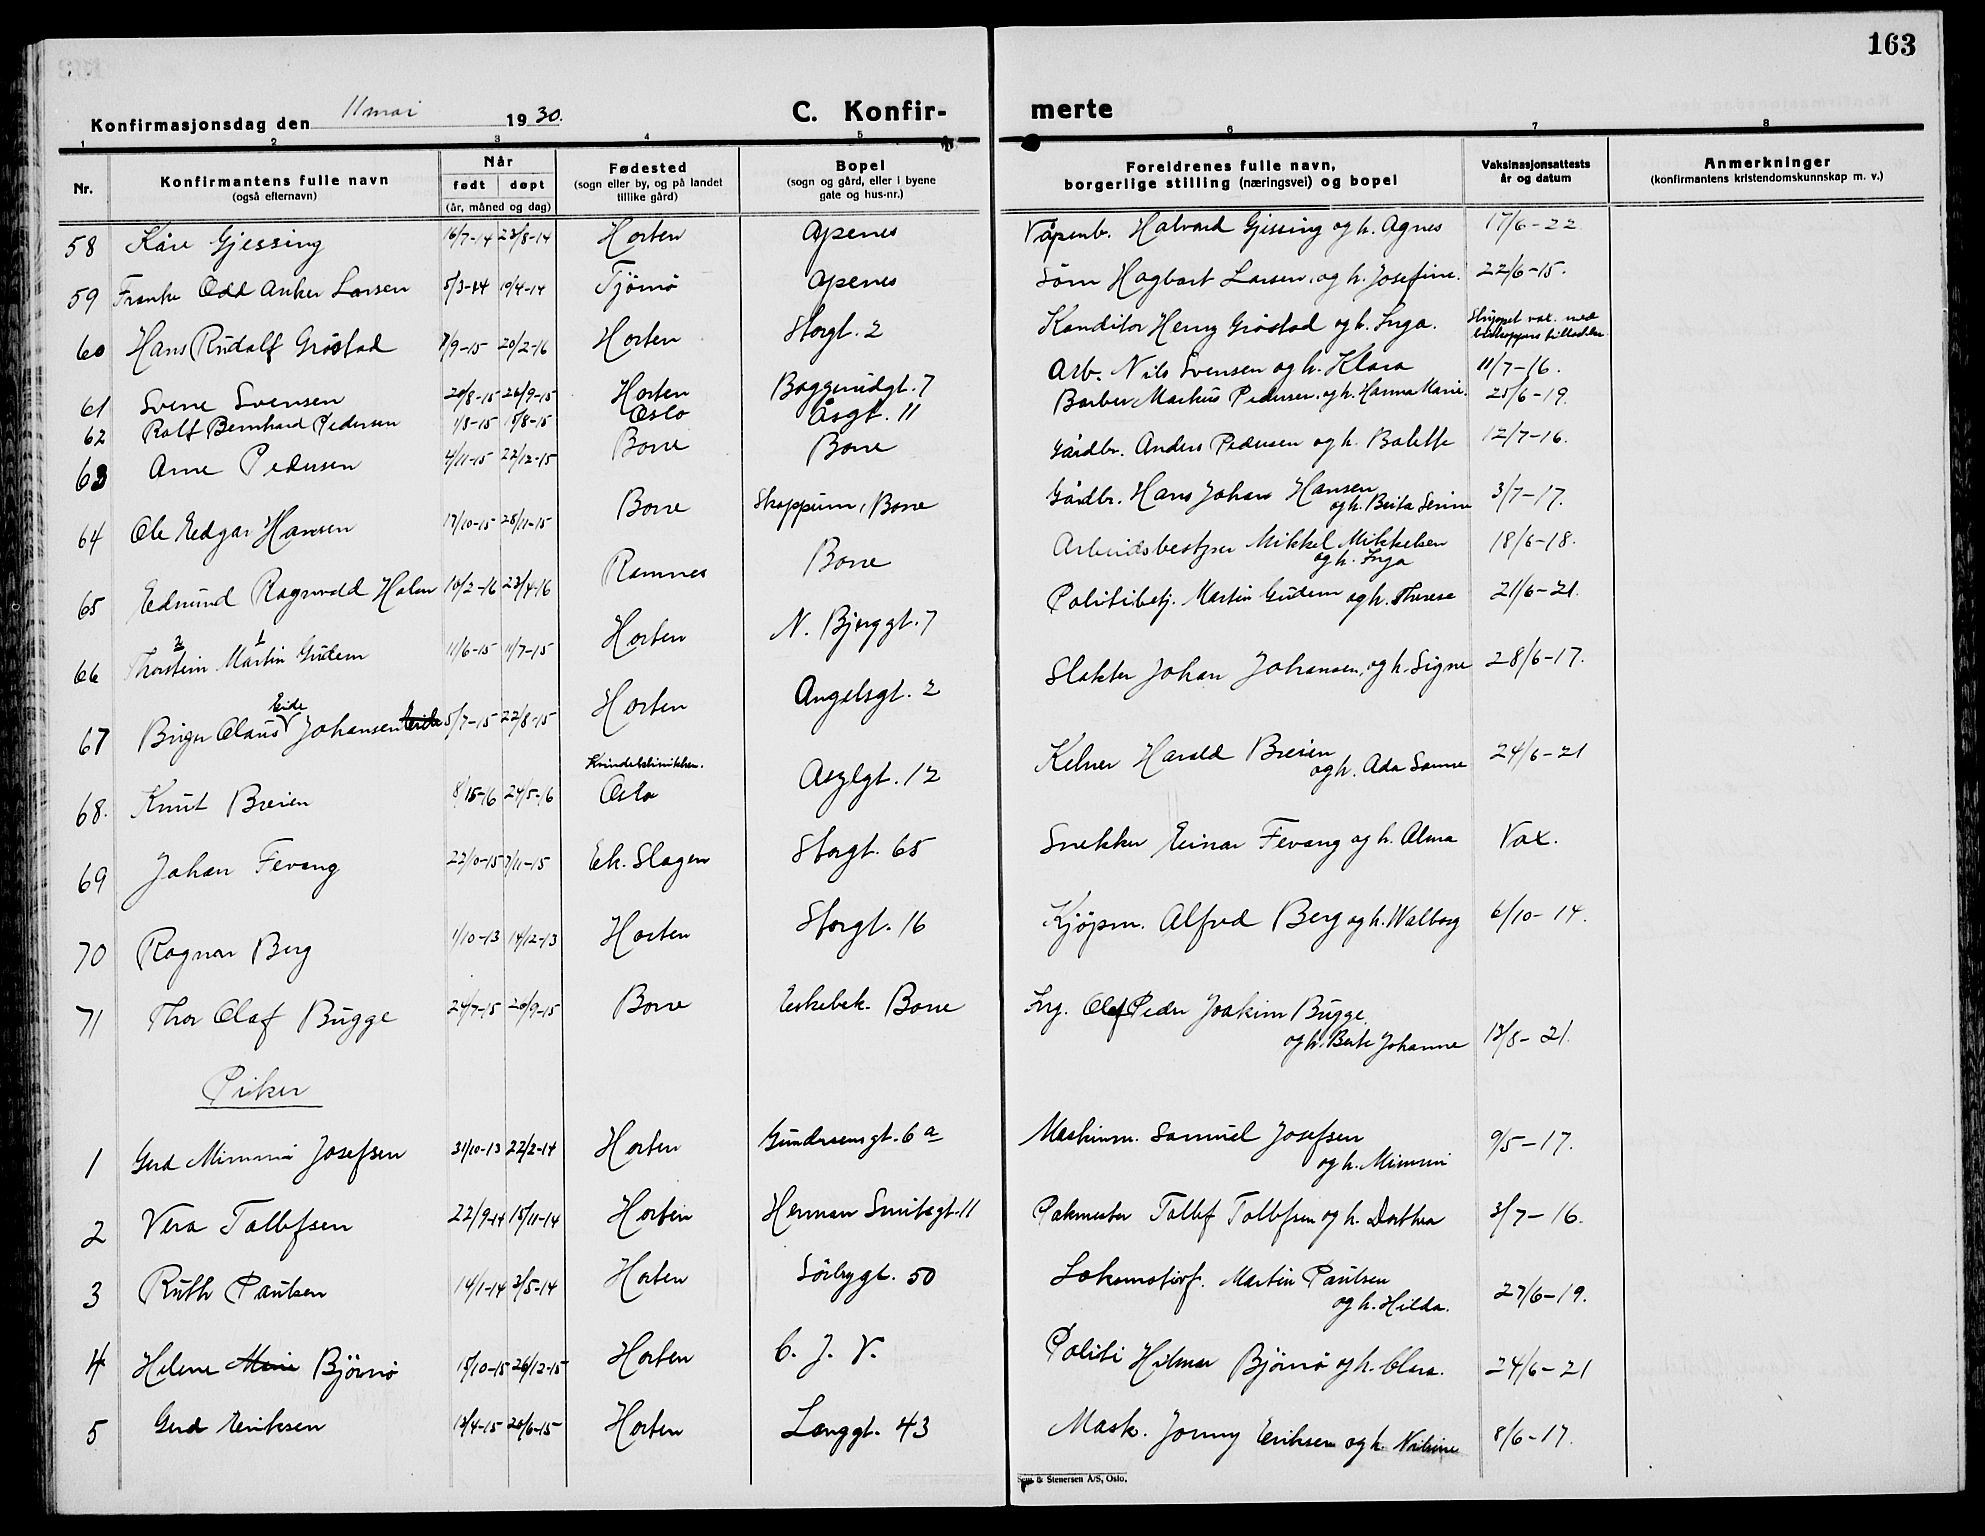 163
Konfirmasjonsdag den 11 mai 1930.
C. Konfir-
merte
1 2 3 4 5 6 7 8
Nr.
Konfirmantens fulle navn
(også efternavn)
Når
født døpt
(år, måned og dag)
Fødested
(sogn eller by, og på landet
tillike gård)
Bopel
(sogn og gård, eller i byene
gate og hus-nr.)
Foreldrenes fulle navn,
borgerlige stilling (næringsvei) og bopel
Vaksinasjonsattests
år og datum
Anmerkninger
(konfirmantens kristendomskunnskap m. v.)
58 Kåre Gjessing 16/7-14 23/8-14 Horten Apenes Våpenb. Halvard Gjessing og h. Agnes 17/6-22
59 Franke Odd Anker Larsen 5/3-14 19/4-14 Tjømø Apenes Søm Hagbart Larsen, og h. Josefine. 22/6-15.
60 Hans Rudolf Grøstad 7/9-15 20/2-16 Horten Storgt. 2 Konditor Henry Grøstad og h. Inga.
61 Svene Svensen 20/8-15 26/9-15 Horten Baggerudgt. 7 Arb. Nils Svensen og h. Klara 11/7-16.
62 Rolf Bernhard Pedersen 1/3-15 15/8-15 Oslo Åsgt. 11 Barber Markus Pedersen, og h. Hanna Marie. 25/6-19.
63 Arne Pedersen 4/11-15 22/12-15 Borre Borre Gårdbr. Anders Pedersen og h. Bolette 12/7-16.
64 Ole Edgar Hansen 17/10-15 28/11-15 Borre Skoppum, Borre Gårdbr. Hans Johan Hansen
og h. Berta Serine 3/7-17.
65 Edmund Ragnvald Holm 10/2-16 23/4-16 Ramnes Borre Arbeidsbestyrer Mikkel Mikkelsen
og h. Inga 18/6-18.
66 Thorstein Martin Gudem 11/6-15 11/7-15 Horten N. Bjerggt. 7 Politibetj. Martin Gudem og h. Therese 21/6-21.
2 1
67 Birger Olaus Eide Johansen 5/7-15 22/8-15 Horten Angelsgt. 2 Slakter Johan Johansen, og h. Signe 28/6-17.
68. Knut Breien 24/5-16 Kvindeklinikken.
Oslo Asylgt. 12 Kelner Harald Breien
og h. Ada Sanna 24/6-21
69 Johan Fevang 22/10-15 7/11-15 Ek. Slagen Storgt. 65 Snekker Einar Fevang og h. Alma Vax.
70 Ragnar Berg 1/10-13 14/12-13 Horten Storgt. 16 Kjøpm. Alfred Berg og h. Walborg 6/10-14.
71 Thor Olaf Bugge 24/7-15 20/9-15 Borre Eskebek. Borre Ing. Olaf Peder Joakim Bugge
og h. Berte Johanne 13/8-21.
Piker
1 Gerd Mimmi Josefsen 31/10-13 22/2-14 Horten Gundersensgt. 6 a Maskinm. Samuel Josefsen
og h. Mimmi 9/5-17.
2 Vera Tollefsen 22/9-14 15/11-14 Horten Herman Smitsgt. 11 Pakmester Tollef Tollefsen og h. Dorthea 3/7-16.
3 Ruth Paulsen 14/1-14 3/5-14 Horten Sörbygt. 50 Lokomotivf. Martin Paulsen
og h. Hilda. 27/6-19.
4 Helene Marie Bjørnø 15/10-15 26/12-15 Horten C. J. V. Politi Hilmar Bjørnø og h. Clara. 24/6-21
5 Gerd Eriksen 13/4-15 20/6-15 Horten Langgt. 43 Mask. Jonny Eriksen og h. Nilsine 8/6-17.
& Stenersen A/S, Oslo.